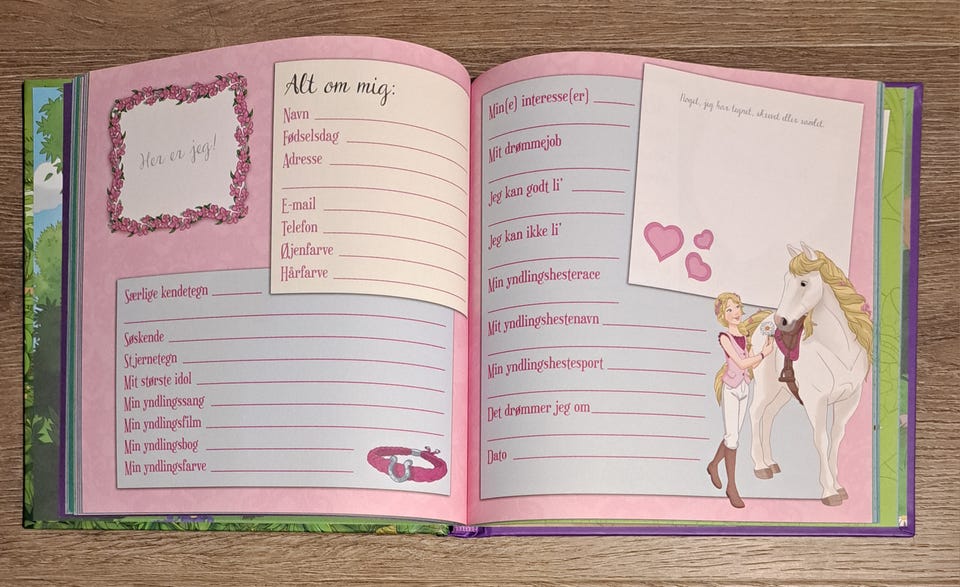 Her er jeg!
Alt om mig:
Navn
Fødselsdag
Adresse
E-mail
Telefon
Øjenfarve
Hårfarve
Særlige kendetegn
Søskende
Stjernetegn
Mit største idol
Min yndlingssang
Min yndlingsfilm
Min yndlingsbog
Min yndlingsfarve
Min(e) interesse(er)
Mit drømmejob
Jeg kan godt li'
Jeg kan ikke li'
Min yndlingshesterace
Mit yndlingshestenavn
Min yndlingshestesport
Det drømmer jeg om
Dato
Noget, jeg har tegnet, skrevet eller samlet.